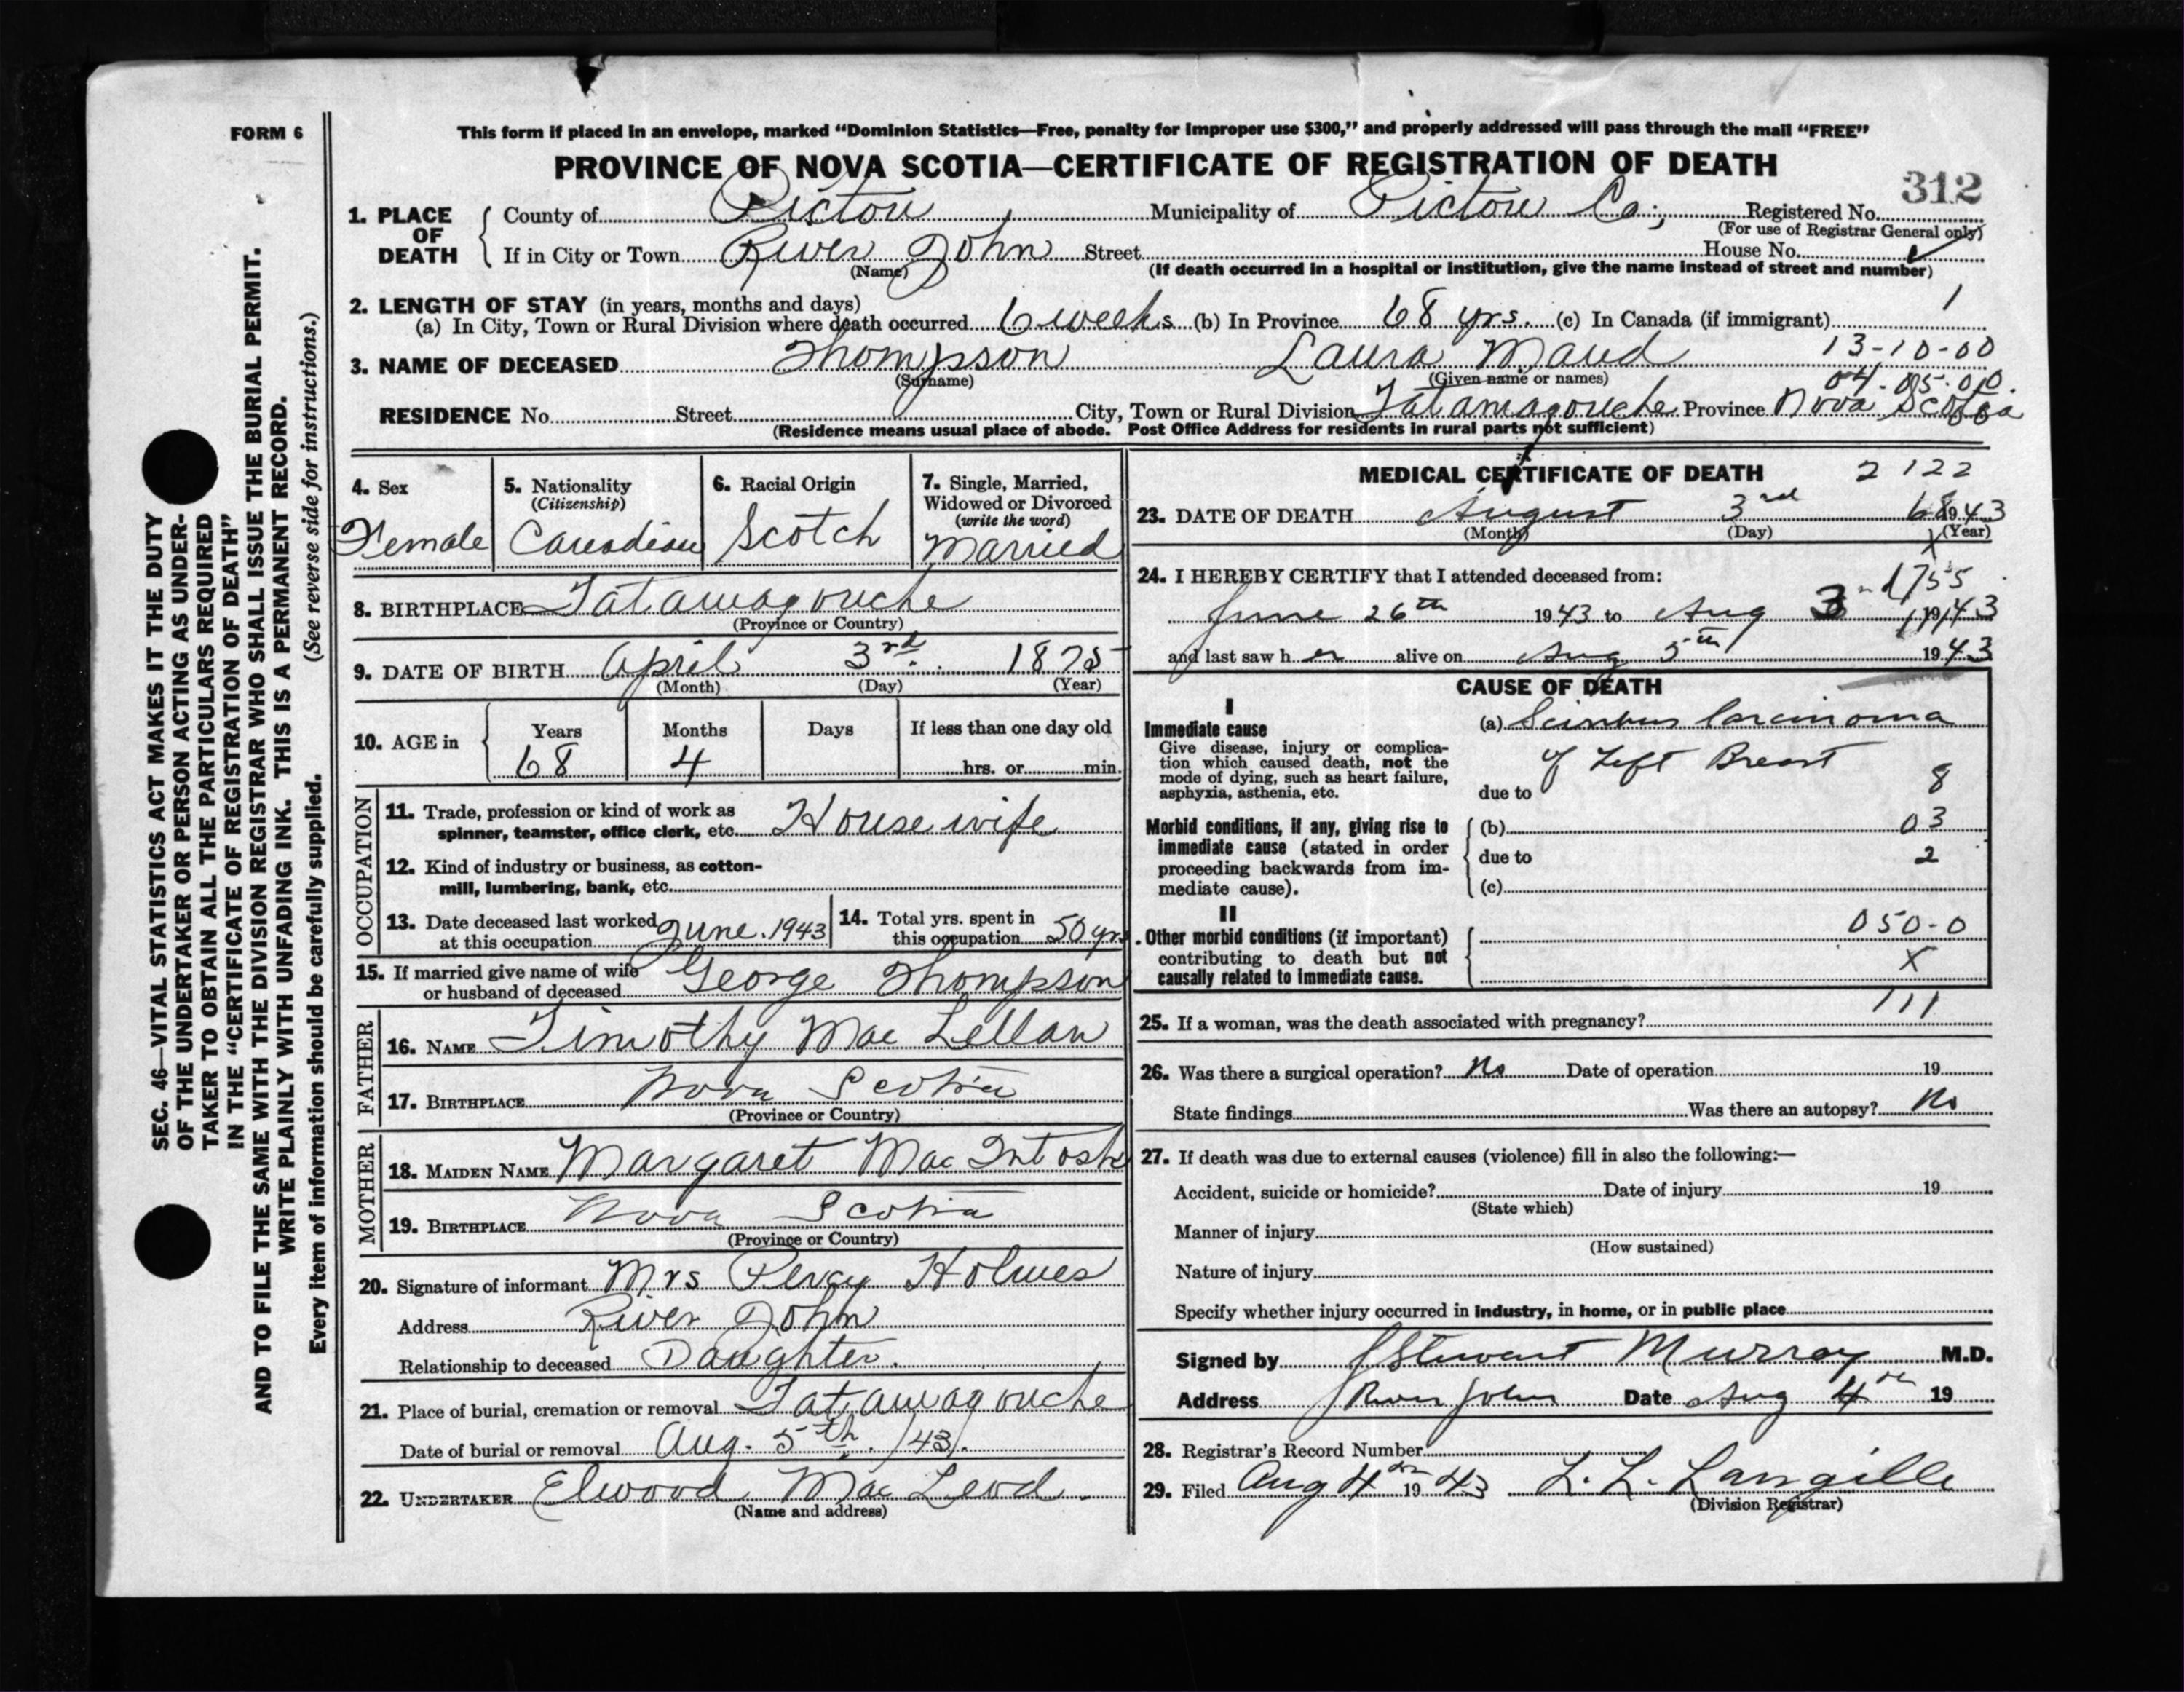 FORM 6
This form if placed in an envelope, marked “Dominion Statistics—Free, penalty for improper use $300,” and properly addressed will pass through the mail “FREE”
PROVINCE OF NOVA SCOTIA—CERTIFICATE OF REGISTRATION OF DEATH
312
1. PLACE OF DEATH
County of Pictou Municipality of Pictou Co; Registered No.
(For use of Registrar General only)
If in City or Town River John Street House No.
(Name) (If death occurred in a hospital or institution, give the name instead of street and number)
1
2. LENGTH OF STAY (in years, months and days)
(a) In City, Town or Rural Division where death occurred 6 weeks (b) In Province 68 yrs. (c) In Canada (if immigrant)
3. NAME OF DECEASED Thompson Laura Maud 13-10-00
(Surname) (Given name or names) 04-05-00.
RESIDENCE No. Street City, Town or Rural Division Tatamagouche Province Nova Scotia
(Residence means usual place of abode. Post Office Address for residents in rural parts not sufficient)
4. Sex
Female
5. Nationality
(Citizenship)
Canadian
6. Racial Origin
Scotch
7. Single, Married,
Widowed or Divorced
(write the word)
Married
8. BIRTHPLACE Tatamagouche
(Province or Country)
9. DATE OF BIRTH April 3rd. 1875
(Month) (Day) (Year)
10. AGE in
Years Months Days If less than one day old
68 4 hrs. or min.
OCCUPATION
11. Trade, profession or kind of work as
spinner, teamster, office clerk, etc. House wife
12. Kind of industry or business, as cotton-
mill, lumbering, bank, etc.
13. Date deceased last worked
at this occupation June. 1943
14. Total yrs. spent in
this occupation 50 yrs.
15. If married give name of wife
or husband of deceased George Thompson
FATHER
16. NAME Timothy Mac Lellan
17. BIRTHPLACE Nova Scotia
(Province or Country)
MOTHER
18. MAIDEN NAME Margaret Mac Intosh
19. BIRTHPLACE Nova Scotia
(Province or Country)
20. Signature of informant Mrs Percy Holmes
Address River John
Relationship to deceased Daughter.
21. Place of burial, cremation or removal Tatamagouche
Date of burial or removal Aug. 5th. /43.
22. UNDERTAKER Elwood Mac Leod
(Name and address)
MEDICAL CERTIFICATE OF DEATH 2 122
23. DATE OF DEATH August 3rd 68 1943
(Month) (Day) (Year)
X
24. I HEREBY CERTIFY that I attended deceased from:
1755
June 26th 1943 to Aug 3 1943
and last saw her alive on Aug 5th 1943
CAUSE OF DEATH
I
Immediate cause
Give disease, injury or complica-
tion which caused death, not the
mode of dying, such as heart failure,
asphyxia, asthenia, etc.
(a) Scirrhus Carcinoma
of Left Breast
due to 8
Morbid conditions, if any, giving rise to
immediate cause (stated in order
proceeding backwards from im-
mediate cause).
(b) 03
due to 2
(c)
II
Other morbid conditions (if important)
contributing to death but not
causally related to immediate cause.
050-0
X
111
25. If a woman, was the death associated with pregnancy?
26. Was there a surgical operation? No Date of operation 19
State findings Was there an autopsy? No
27. If death was due to external causes (violence) fill in also the following:—
Accident, suicide or homicide? Date of injury 19
(State which)
Manner of injury
(How sustained)
Nature of injury
Specify whether injury occurred in industry, in home, or in public place
Signed by J Stewart Murray M.D.
Address River John Date Aug 4th 19
28. Registrar's Record Number
29. Filed Aug 4th 1943 L. L. Langille
(Division Registrar)
SEC. 46—VITAL STATISTICS ACT MAKES IT THE DUTY
OF THE UNDERTAKER OR PERSON ACTING AS UNDER-
TAKER TO OBTAIN ALL THE PARTICULARS REQUIRED
IN THE “CERTIFICATE OF REGISTRATION OF DEATH”
AND TO FILE THE SAME WITH THE DIVISION REGISTRAR WHO SHALL ISSUE THE BURIAL PERMIT.
WRITE PLAINLY WITH UNFADING INK. THIS IS A PERMANENT RECORD.
Every item of information should be carefully supplied. (See reverse side for instructions.)